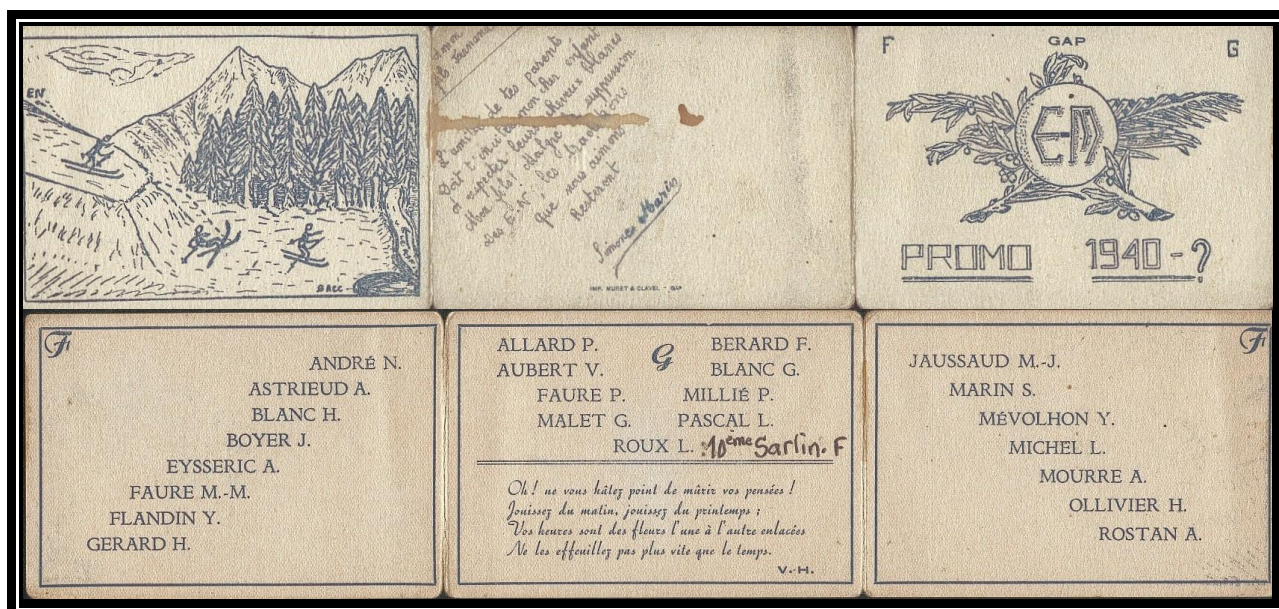 EN
BACC
L'amitié de tes parents
Doit t'inciter mon cher enfant
à respecter leurs cheveux blancs
Mon fils! Malgré la suppression
Des E.N. les traditions
que nous aimons
Resteront
Simone Marin
IMP. MURET & CLAVEL - GAP
F GAP G
E-M
PROMO 1940-?
F
ANDRÉ N.
ASTRIEUD A.
BLANC H.
BOYER J.
EYSSERIC A.
FAURE M.-M.
FLANDIN Y.
GERARD H.
G
ALLARD P. BERARD F.
AUBERT V. BLANC G.
FAURE P. MILLIÉ P.
MALET G. PASCAL L.
ROUX L. 10ème Sarlin. F
Oh! ne vous hâtez point de mûrir vos pensées !
Jouissez du matin, jouissez du printemps ;
Vos heures sont des fleurs l'une à l'autre enlacées
Ne les effeuillez pas plus vite que le temps.
V.-H.
F
JAUSSAUD M.-J.
MARIN S.
MÉVOLHON Y.
MICHEL L.
MOURRE A.
OLLIVIER H.
ROSTAN A.